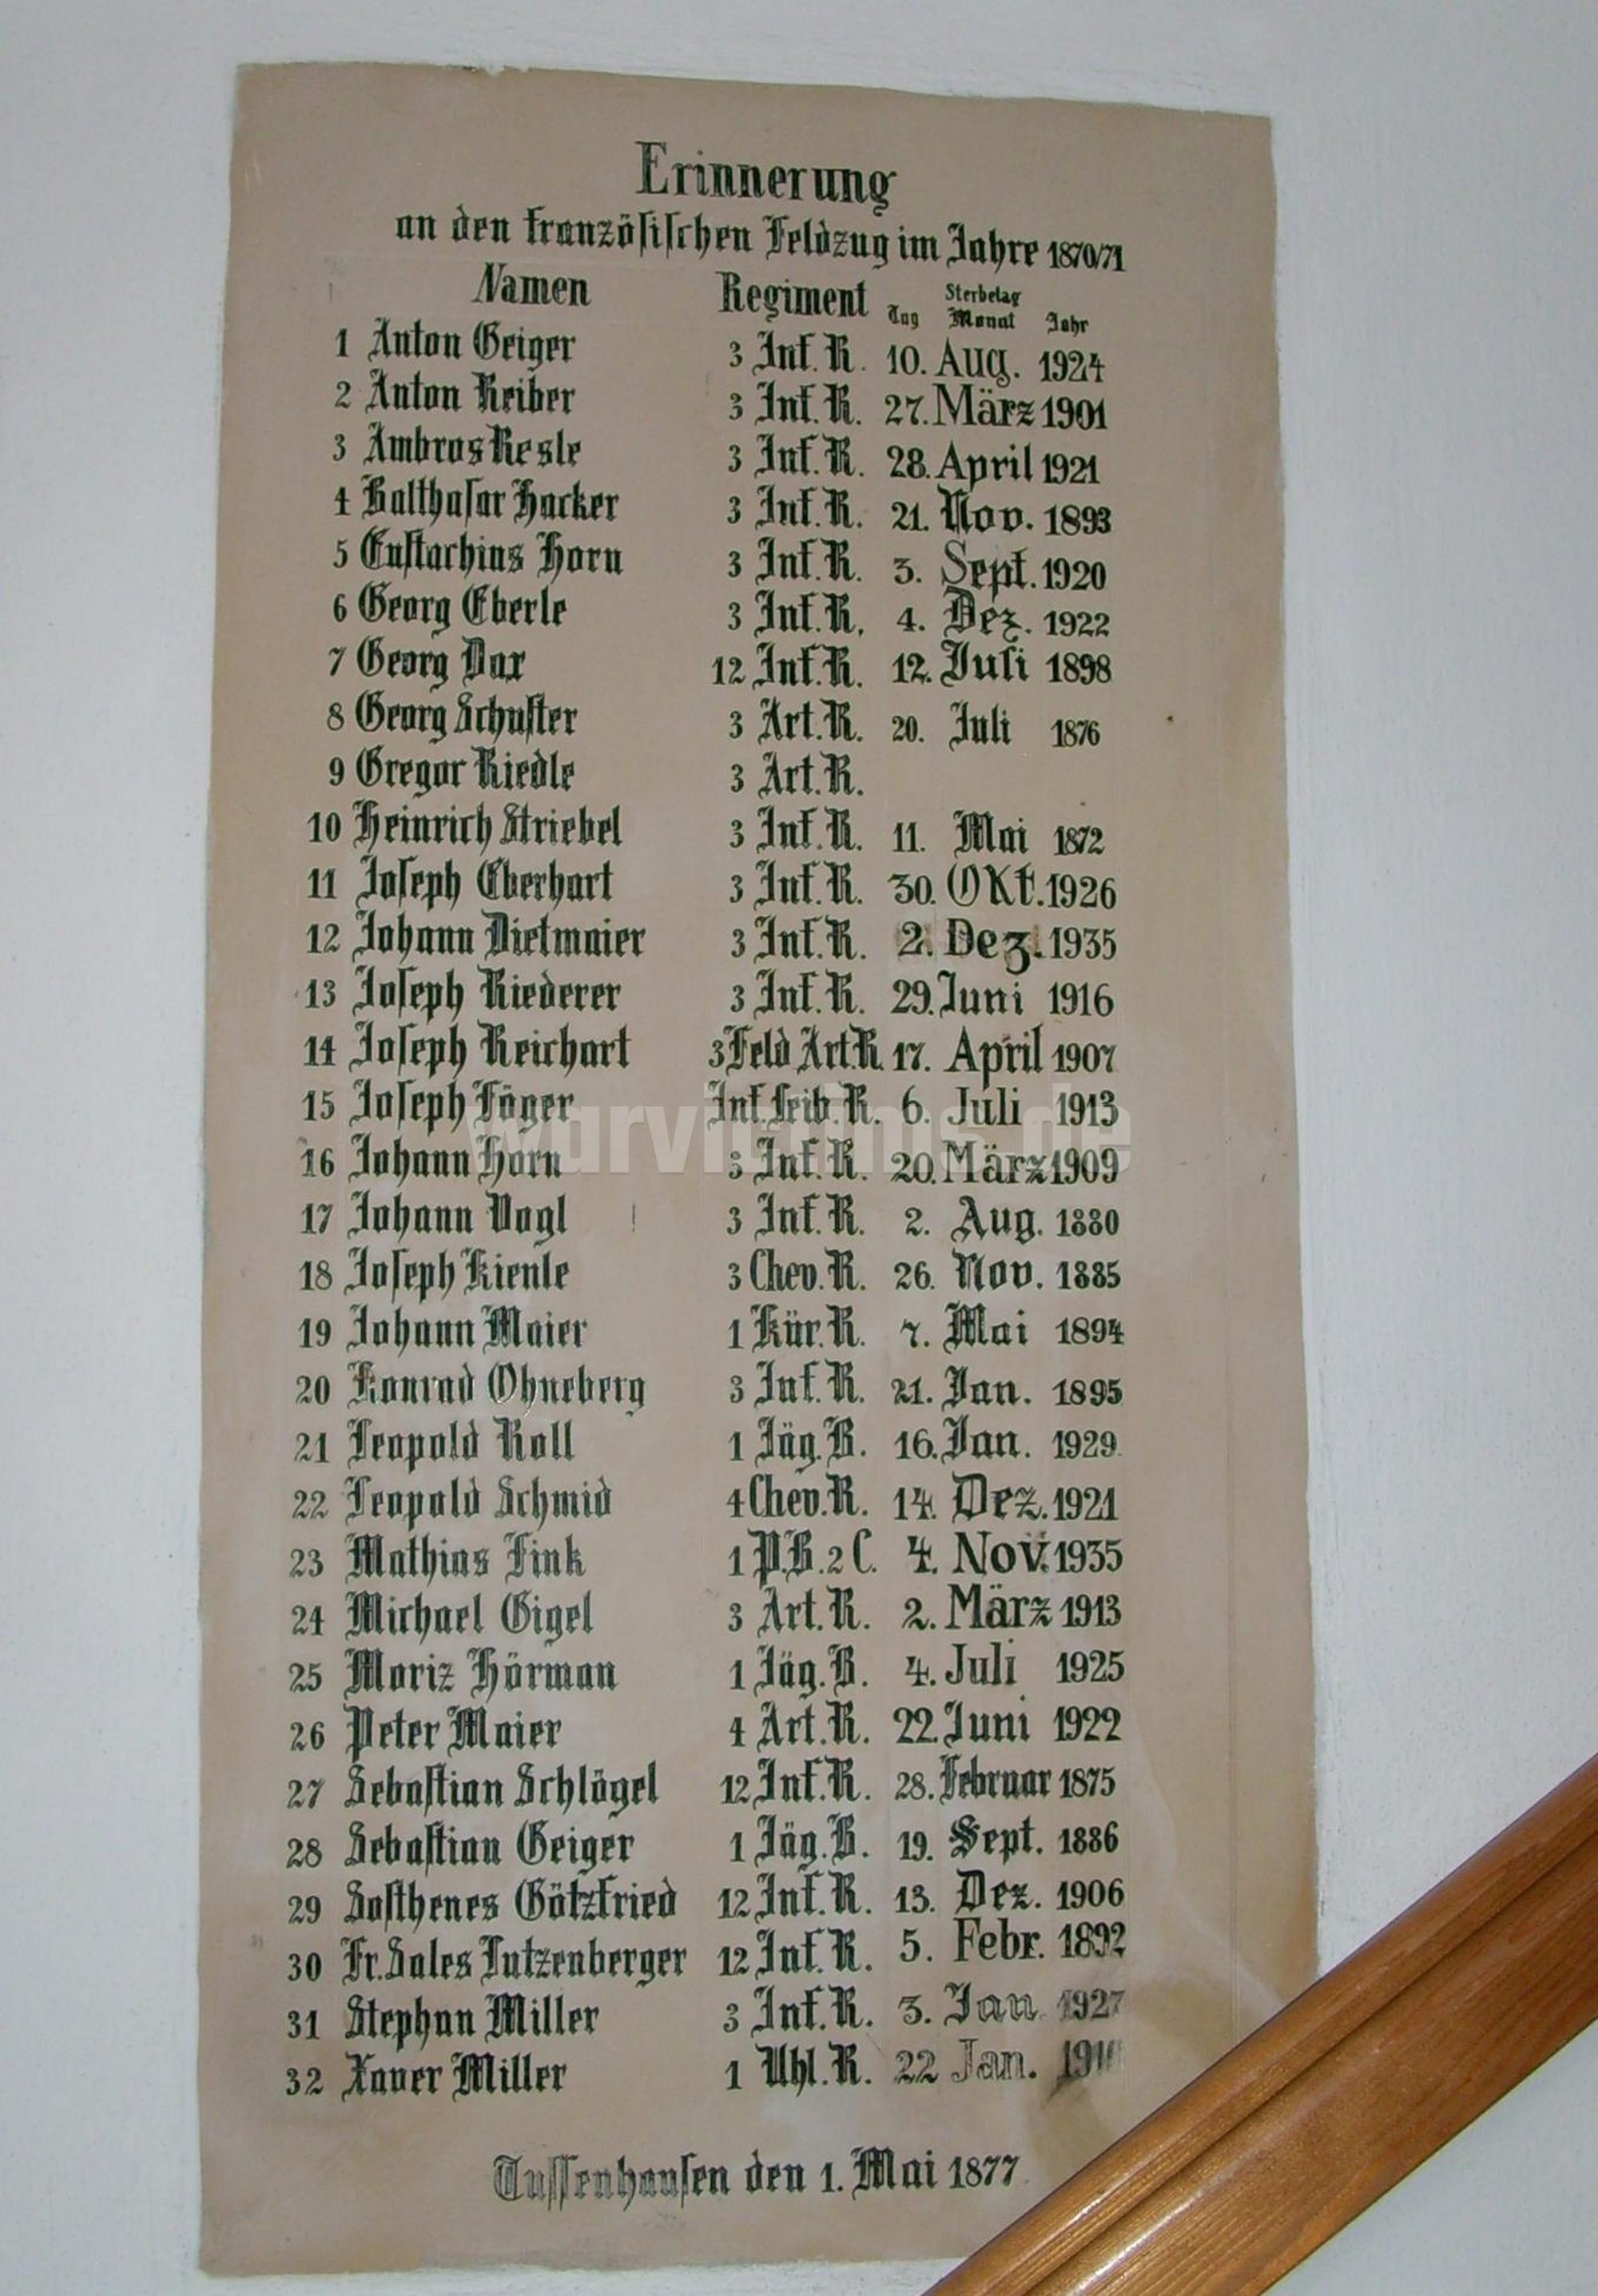 Erinnerung
an den französischen Feldzug im Jahre 1870/71
Namen Regiment Sterbetag
Tag Monat Jahr
1 Anton Geiger 3 Inf. R. 10. Aug. 1924
2 Anton Reiber 3 Inf. R. 27. März 1901
3 Ambros Resle 3 Inf. R. 28. April 1921
4 Balthasar Hacker 3 Inf. R. 21. Nov. 1893
5 Eustachius Horn 3 Inf. R. 3. Sept. 1920
6 Georg Eberle 3 Inf. R. 4. Dez. 1922
7 Georg Dax 12 Inf. R. 12. Juli 1898
8 Georg Schuster 3 Art. R. 20. Juli 1876
9 Gregor Riedle 3 Art. R.
10 Heinrich Striebel 3 Inf. R. 11. Mai 1872
11 Joseph Eberhart 3 Inf. R. 30. Okt. 1926
12 Johann Dietmaier 3 Inf. R. 2. Dez. 1935
13 Joseph Riederer 3 Inf. R. 29. Juni 1916
14 Joseph Reichart 3 Feld Art. R. 17. April 1907
15 Joseph Föger Inf. Leib. R. 6. Juli 1913
16 Johann Horn 3 Inf. R. 20. März 1909
17 Johann Vogl 3 Inf. R. 2. Aug. 1880
18 Joseph Kienle 3 Chev. R. 26. Nov. 1885
19 Johann Maier 1 Kür. R. 7. Mai 1894
20 Konrad Ohneberg 3 Inf. R. 21. Jan. 1895
21 Leopold Roll 1 Jäg. B. 16. Jan. 1929.
22 Leopold Schmid 4 Chev. R. 14. Dez. 1921
23 Mathias Fink 1 P.B. 2 C. 4. Nov. 1935
24 Michael Gigel 3 Art. R. 2. März 1913
25 Moriz Hörman 1 Jäg. B. 4. Juli 1925
26 Peter Maier 4 Art. R. 22. Juni 1922
27 Sebastian Schlögel 12 Inf. R. 28. Februar 1875
28 Sebastian Geiger 1 Jäg. B. 19. Sept. 1886
29 Sosthenes Götzfried 12 Inf. R. 13. Dez. 1906
30 Fr. Sales Lutzenberger 12 Inf. R. 5. Febr. 1892
31 Stephan Miller 3 Inf. R. 3. Jan. 1927
32 Xaver Miller 1 Uhl. R. 22 Jan.
Tussenhausen den 1. Mai 1877